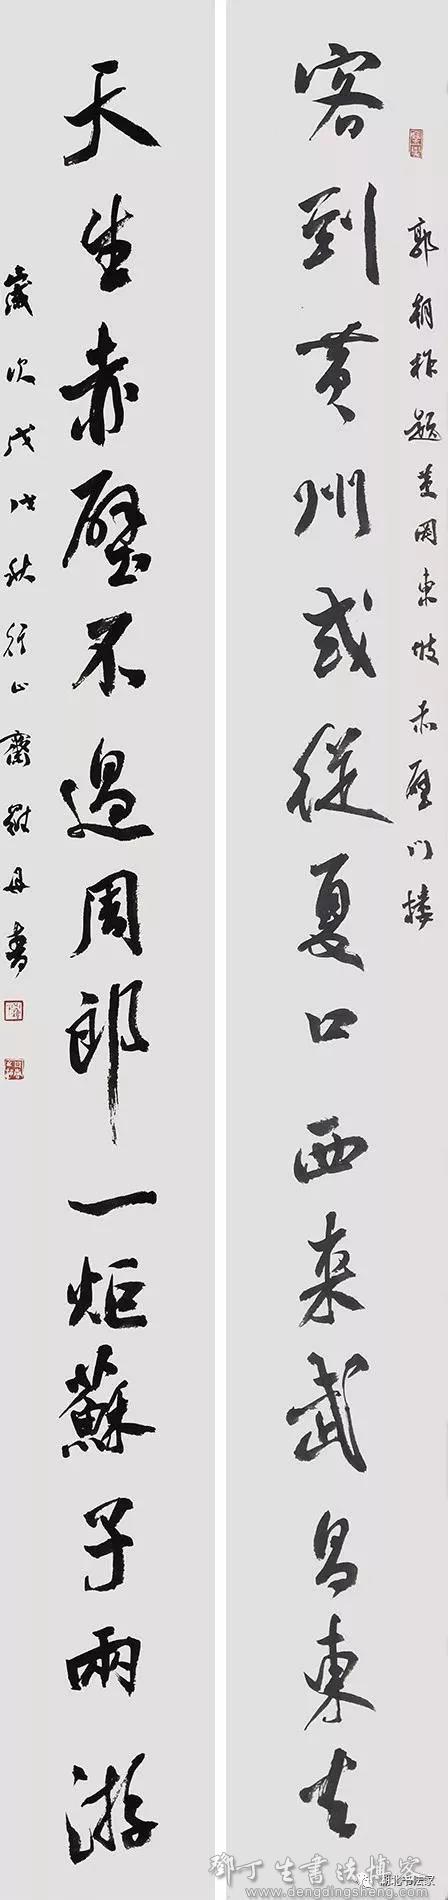 郭朝祚題黄岡東坡赤壁门樓
客到黄州或從夏口西来武昌東去
天生赤壁不過周郎一炬蘇子兩游
歲次戊戌秋齋丹書
鄧丁生書法博客
www.dengdingsheng.com
湖北书法家